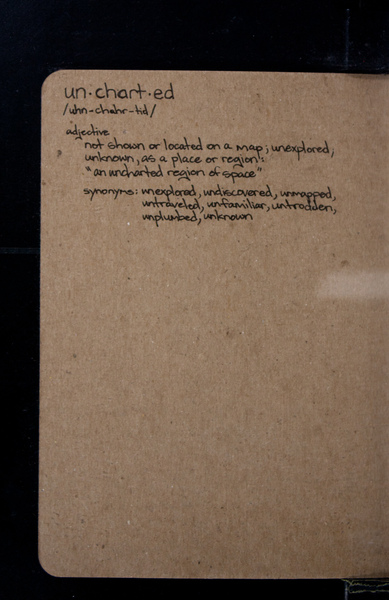 un·chart·ed
/uhn-chahr-tid/
adjective
not shown or located on a map; unexplored,
unknown, as a place or region:
"an uncharted region of space"
synonyms: unexplored, undiscovered, unmapped,
untraveled, unfamiliar, untrodden;
unplumbed, unknown